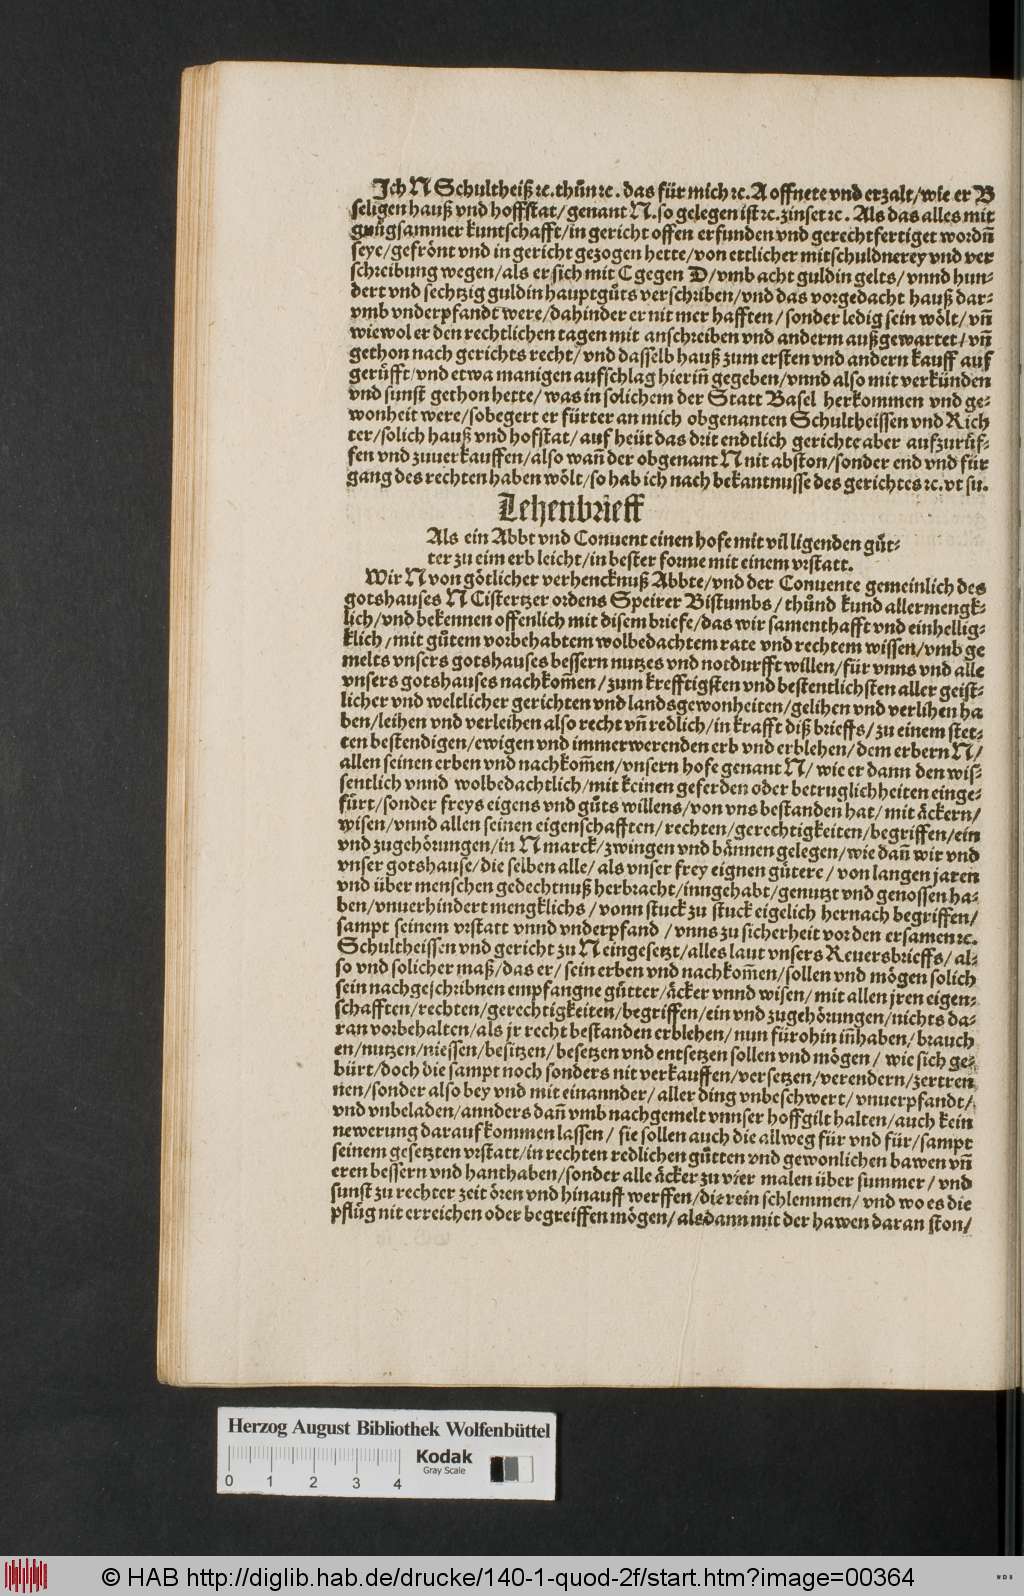 Ich N Schultheiß ꝛc. thůn ꝛc. das für mich ꝛc. A offnete vnd erzalt/wie er B
seligen hauß vnd hoffstat/genant N. so gelegen ist ꝛc. zinset ꝛc. Als das alles mit
gnůgsammer kuntschafft/in gericht offen erfunden vnd gerechtfertiget wordñ
seye/gefrönt vnd in gericht gezogen hette/von ettlicher mitschuldnerey vnd ver
schreibung wegen/als er sich mit C gegen D/vmb acht guldin gelts/vnnd hun-
dert vnd sechtzig guldin hauptgůts verschriben/vnd das vorgedacht hauß dar-
vmb vnderpfandt were/dahinder er nit mer hafften/sonder ledig sein wölt/vñ
wiewol er den rechtlichen tagen mit anschreiben vnd anderm außgewartet/vñ
gethon nach gerichts recht/vnd dasselb hauß zum ersten vnd andern kauff auf
gerüfft/vnd etwa manigen aufschlag hieriñ gegeben/vnnd also mit verkünden
vnd sunst gethon hette/was in solichem der Statt Basel herkommen vnd ge-
wonheit were/so begert er fürter an mich obgenanten Schultheissen vnd Rich
ter/solich hauß vnd hofstat/auf heüt das drit endtlich gerichte aber aufzurüf-
fen vnd zuuerkauffen/also wañ der obgenant N nit abston/sonder end vnd für
gang des rechten haben wölt/so hab ich nach bekantnusse des gerichtes ꝛc. vt su.
Lehenbrieff
Als ein Abbt vnd Conuent einen hofe mit vil ligenden güt-
ter zu eim erb leicht/in bester forme mit einem vrstatt.
Wir N von götlicher verhencknuß Abbte/vnd der Conuente gemeinlich des
gotshauses N Cistertzer ordens Speirer Bistumbs/thůnd kund allermengk-
lich/vnd bekennen offenlich mit disem briefe/das wir samenthafft vnd einhellig-
klich/mit gůtem vorbehabtem wolbedachtem rate vnd rechtem wissen/vmb ge
melts vnsers gotshauses bessern nutzes vnd notdurfft willen/für vnns vnd alle
vnsers gotshauses nachkom̃en/zum krefftigsten vnd bestentlichsten aller geist-
licher vnd weltlicher gerichten vnd landsgewonheiten/gelihen vnd verlihen ha
ben/leihen vnd verleihen also recht vñ redlich/in krafft diß brieffs/zu einem stet-
ten bestendigen/ewigen vnd immerwerenden erb vnd erblehen/dem erbern N/
allen seinen erben vnd nachkom̃en/vnsern hofe genant N/wie er dann den wis-
sentlich vnnd wolbedachtlich/mit keinen geferden oder betruglichheiten einge-
fürt/sonder freys eigens vnd gůts willens/von vns bestanden hat/mit äckern/
wisen/vnnd allen seinen eigenschafften/rechten/gerechtigkeiten/begriffen/ein
vnd zugehörungen/in N marck/zwingen vnd bännen gelegen/wie dañ wir vnd
vnser gotshause/die selben alle/als vnser frey eignen gütere/von langen jaren
vnd über menschen gedechtnuß herbracht/inngehabt/genutzt vnd genossen ha-
ben/vnuerhindert mengklichs/vonn stuck zu stuck eigelich hernach begriffen/
sampt seinem vrstatt vnnd vnderpfand/vnns zu sicherheit vor den ersamen ꝛc.
Schultheissen vnd gericht zu N eingesetzt/alles laut vnsers Reuersbrieffs/al-
so vnd solicher maß/das er/sein erben vnd nachkom̃en/sollen vnd mögen solich
sein nachgeschribnen empfangne gütter/äcker vnnd wisen/mit allen jren eigen-
schafften/rechten/gerechtigkeiten/begriffen/ein vnd zugehörungen/nichts da-
ran vorbehalten/als jr recht bestanden erblehen/nun fürohin iñhaben/brauch
en/nutzen/niessen/besitzen/besetzen vnd entsetzen sollen vnd mögen/wie sich ge-
bürt/doch die sampt noch sonders nit verkauffen/versetzen/verendern/zertren
nen/sonder also bey vnd mit einannder/aller ding vnbeschwert/vnuerpfandt/
vnd vnbeladen/annders dañ vmb nachgemelt vnnser hoffgilt halten/auch kein
newerung darauf kommen lassen/sie sollen auch die allweg für vnd für/sampt
seinem gesetzten vrstatt/in rechten redlichen gütten vnd gewonlichen bawen vñ
eren bessern vnd hanthaben/sonder alle äcker zu vier malen über summer/vnd
sunst zu rechter zeit ören vnd hinauff werffen/die rein schlemmen/vnd wo es die
pflüg nit erreichen oder begreiffen mögen/alsdann mit der hawen daran ston/
Herzog August Bibliothek Wolfenbüttel
Kodak
Gray Scale
0 1 2 3 4
© HAB http://diglib.hab.de/drucke/140-1-quod-2f/start.htm?image=00364